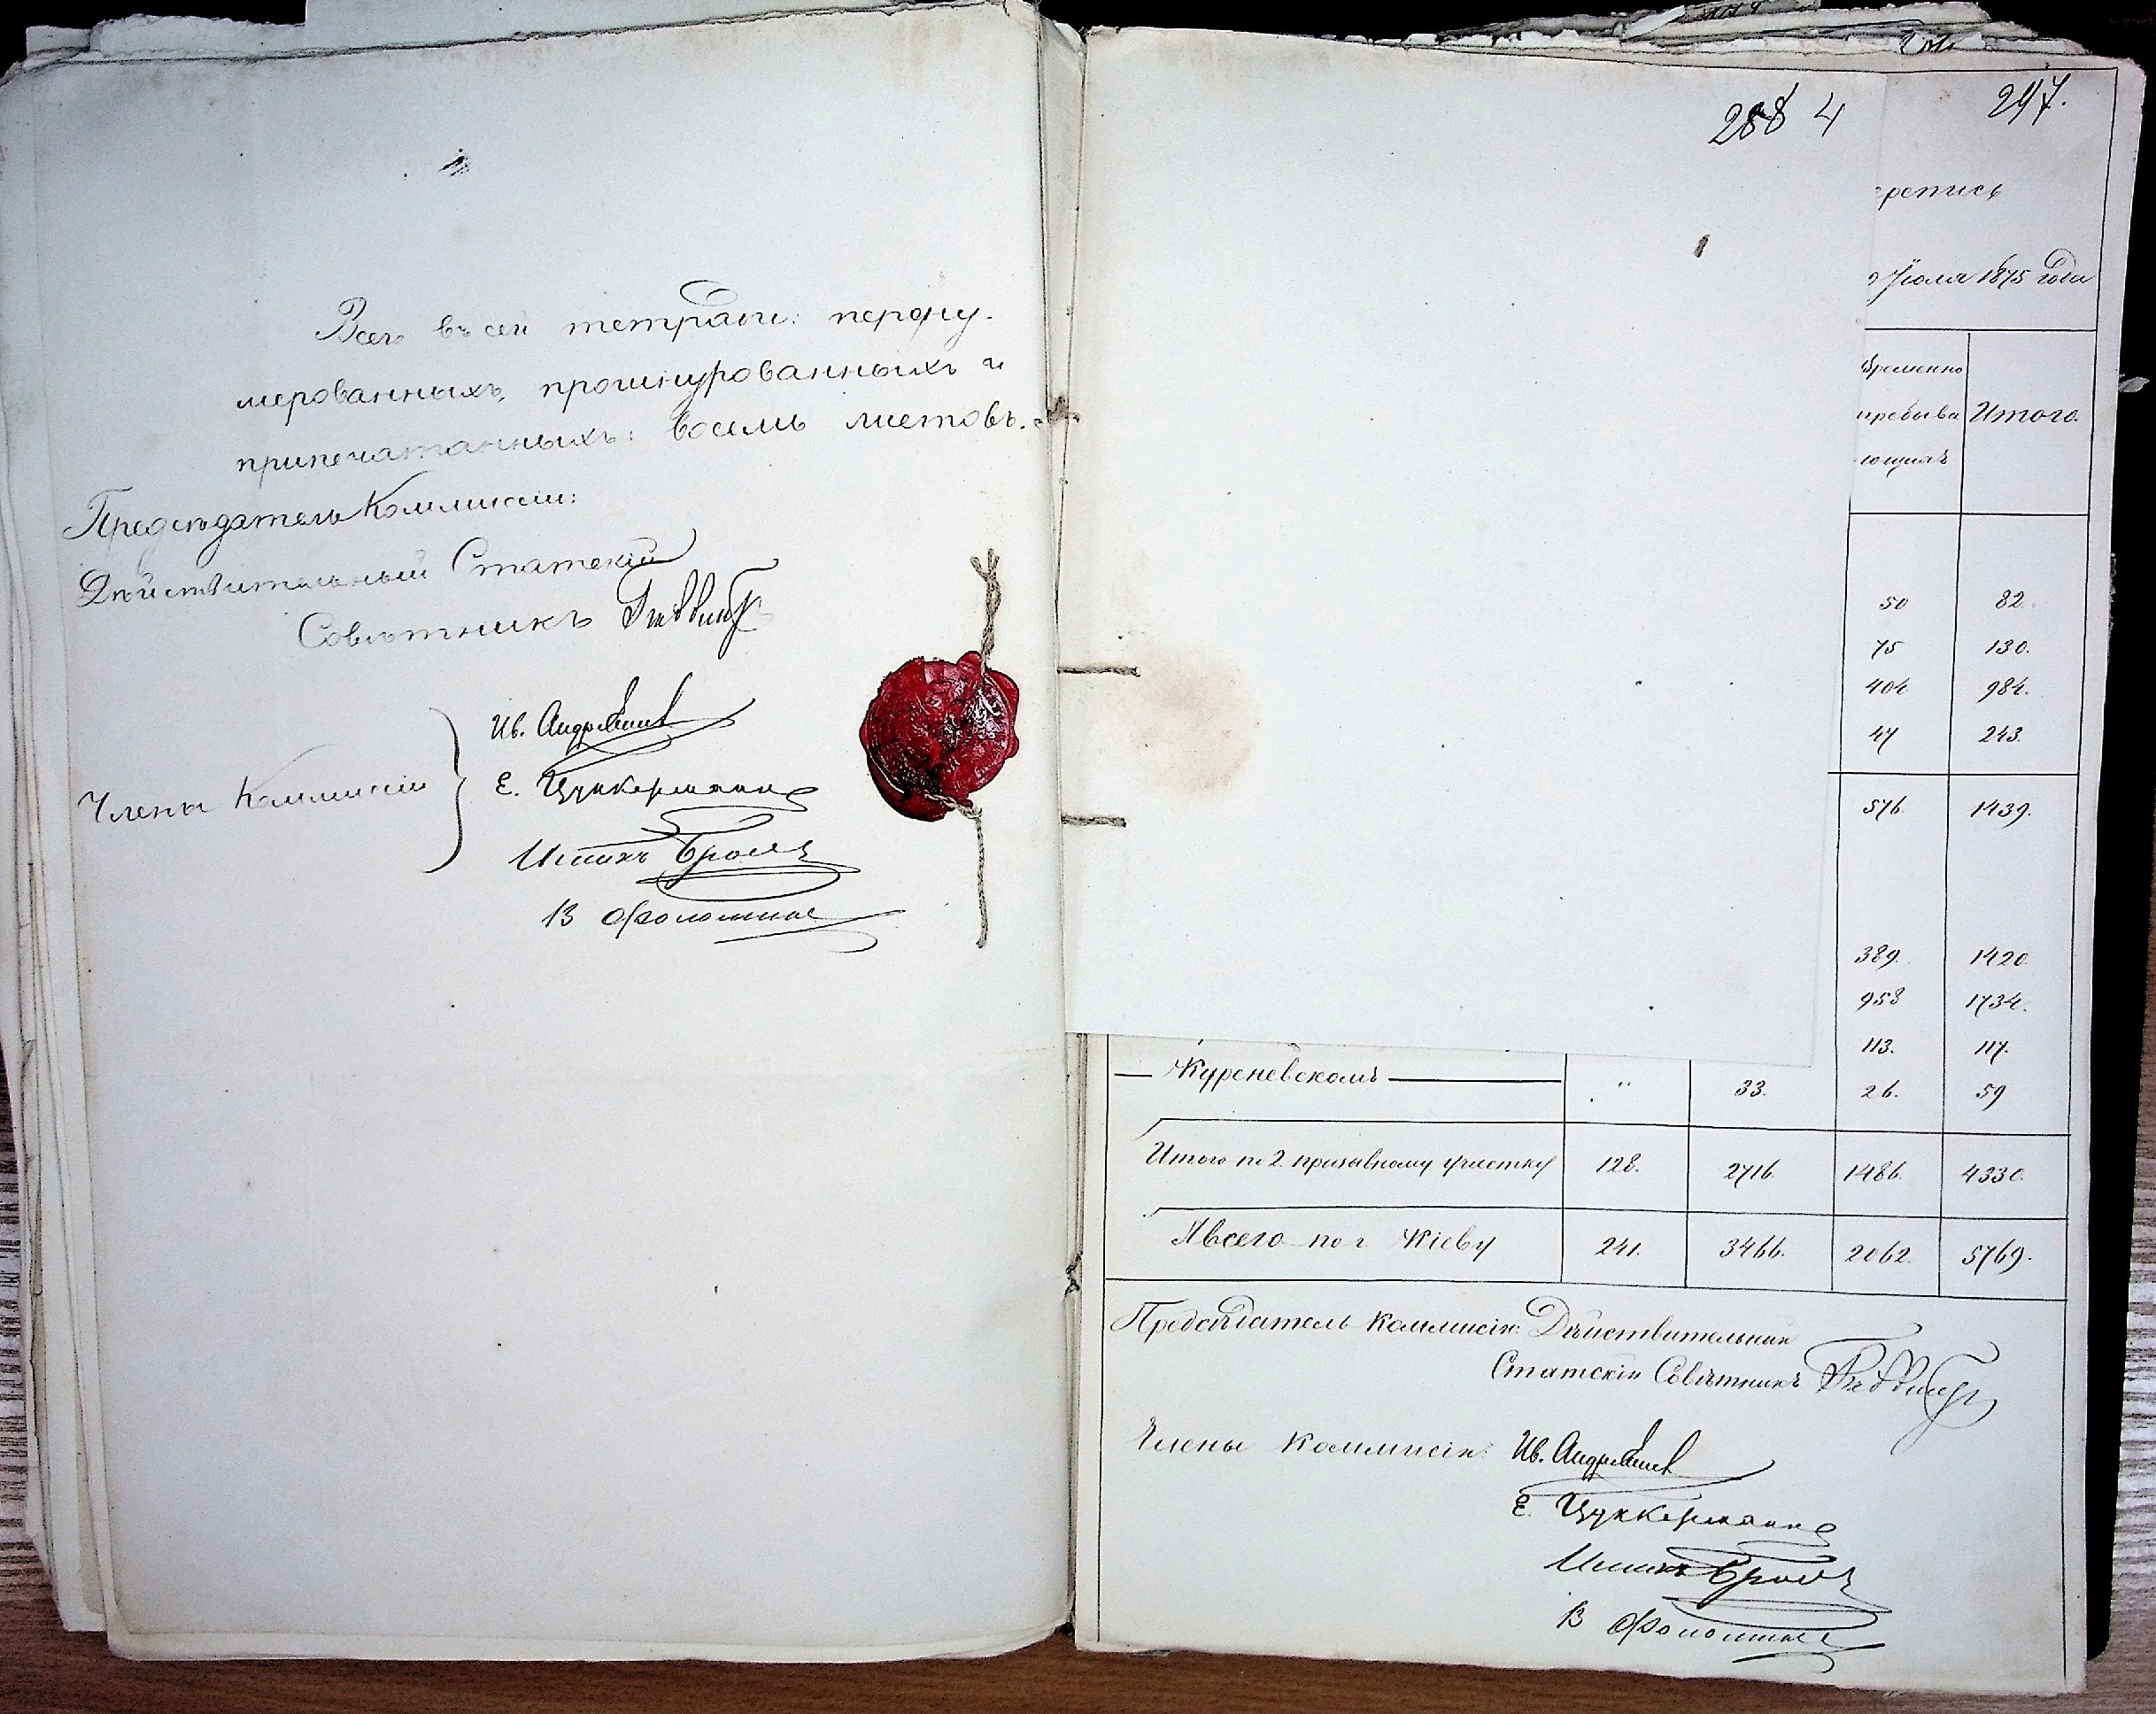 Всего въ сей тетради: перону-
мерованныхъ, прошнурованныхъ и
припечатанныхъ: восемь листовъ.
Предсѣдатель Коммисіи:
Дѣйствительный Статскій
Совѣтникъ
Члены Коммисіи
Ив.
Е. Цуккерманъ
Ицикъ
В
288 4
297.
ерепись
Іюля 1875 года
Временно
пребыва
ющихъ
Итого.
50 82.
75 130.
404 984.
47 243.
576. 1439.
389. 1420.
958 1734.
113. 117.
— Куреневскомъ — " 33. 26. 59
Итого по 2 призывному участку 128. 2716. 1486. 4330.
А всего по г. Кіеву 241. 3466. 2062. 5769.
Предсѣдатель Коммисіи: Дѣйствительный
Статскій Совѣтникъ
Члены Коммисіи: Ив.
Е. Цуккерманъ
Ицикъ
В